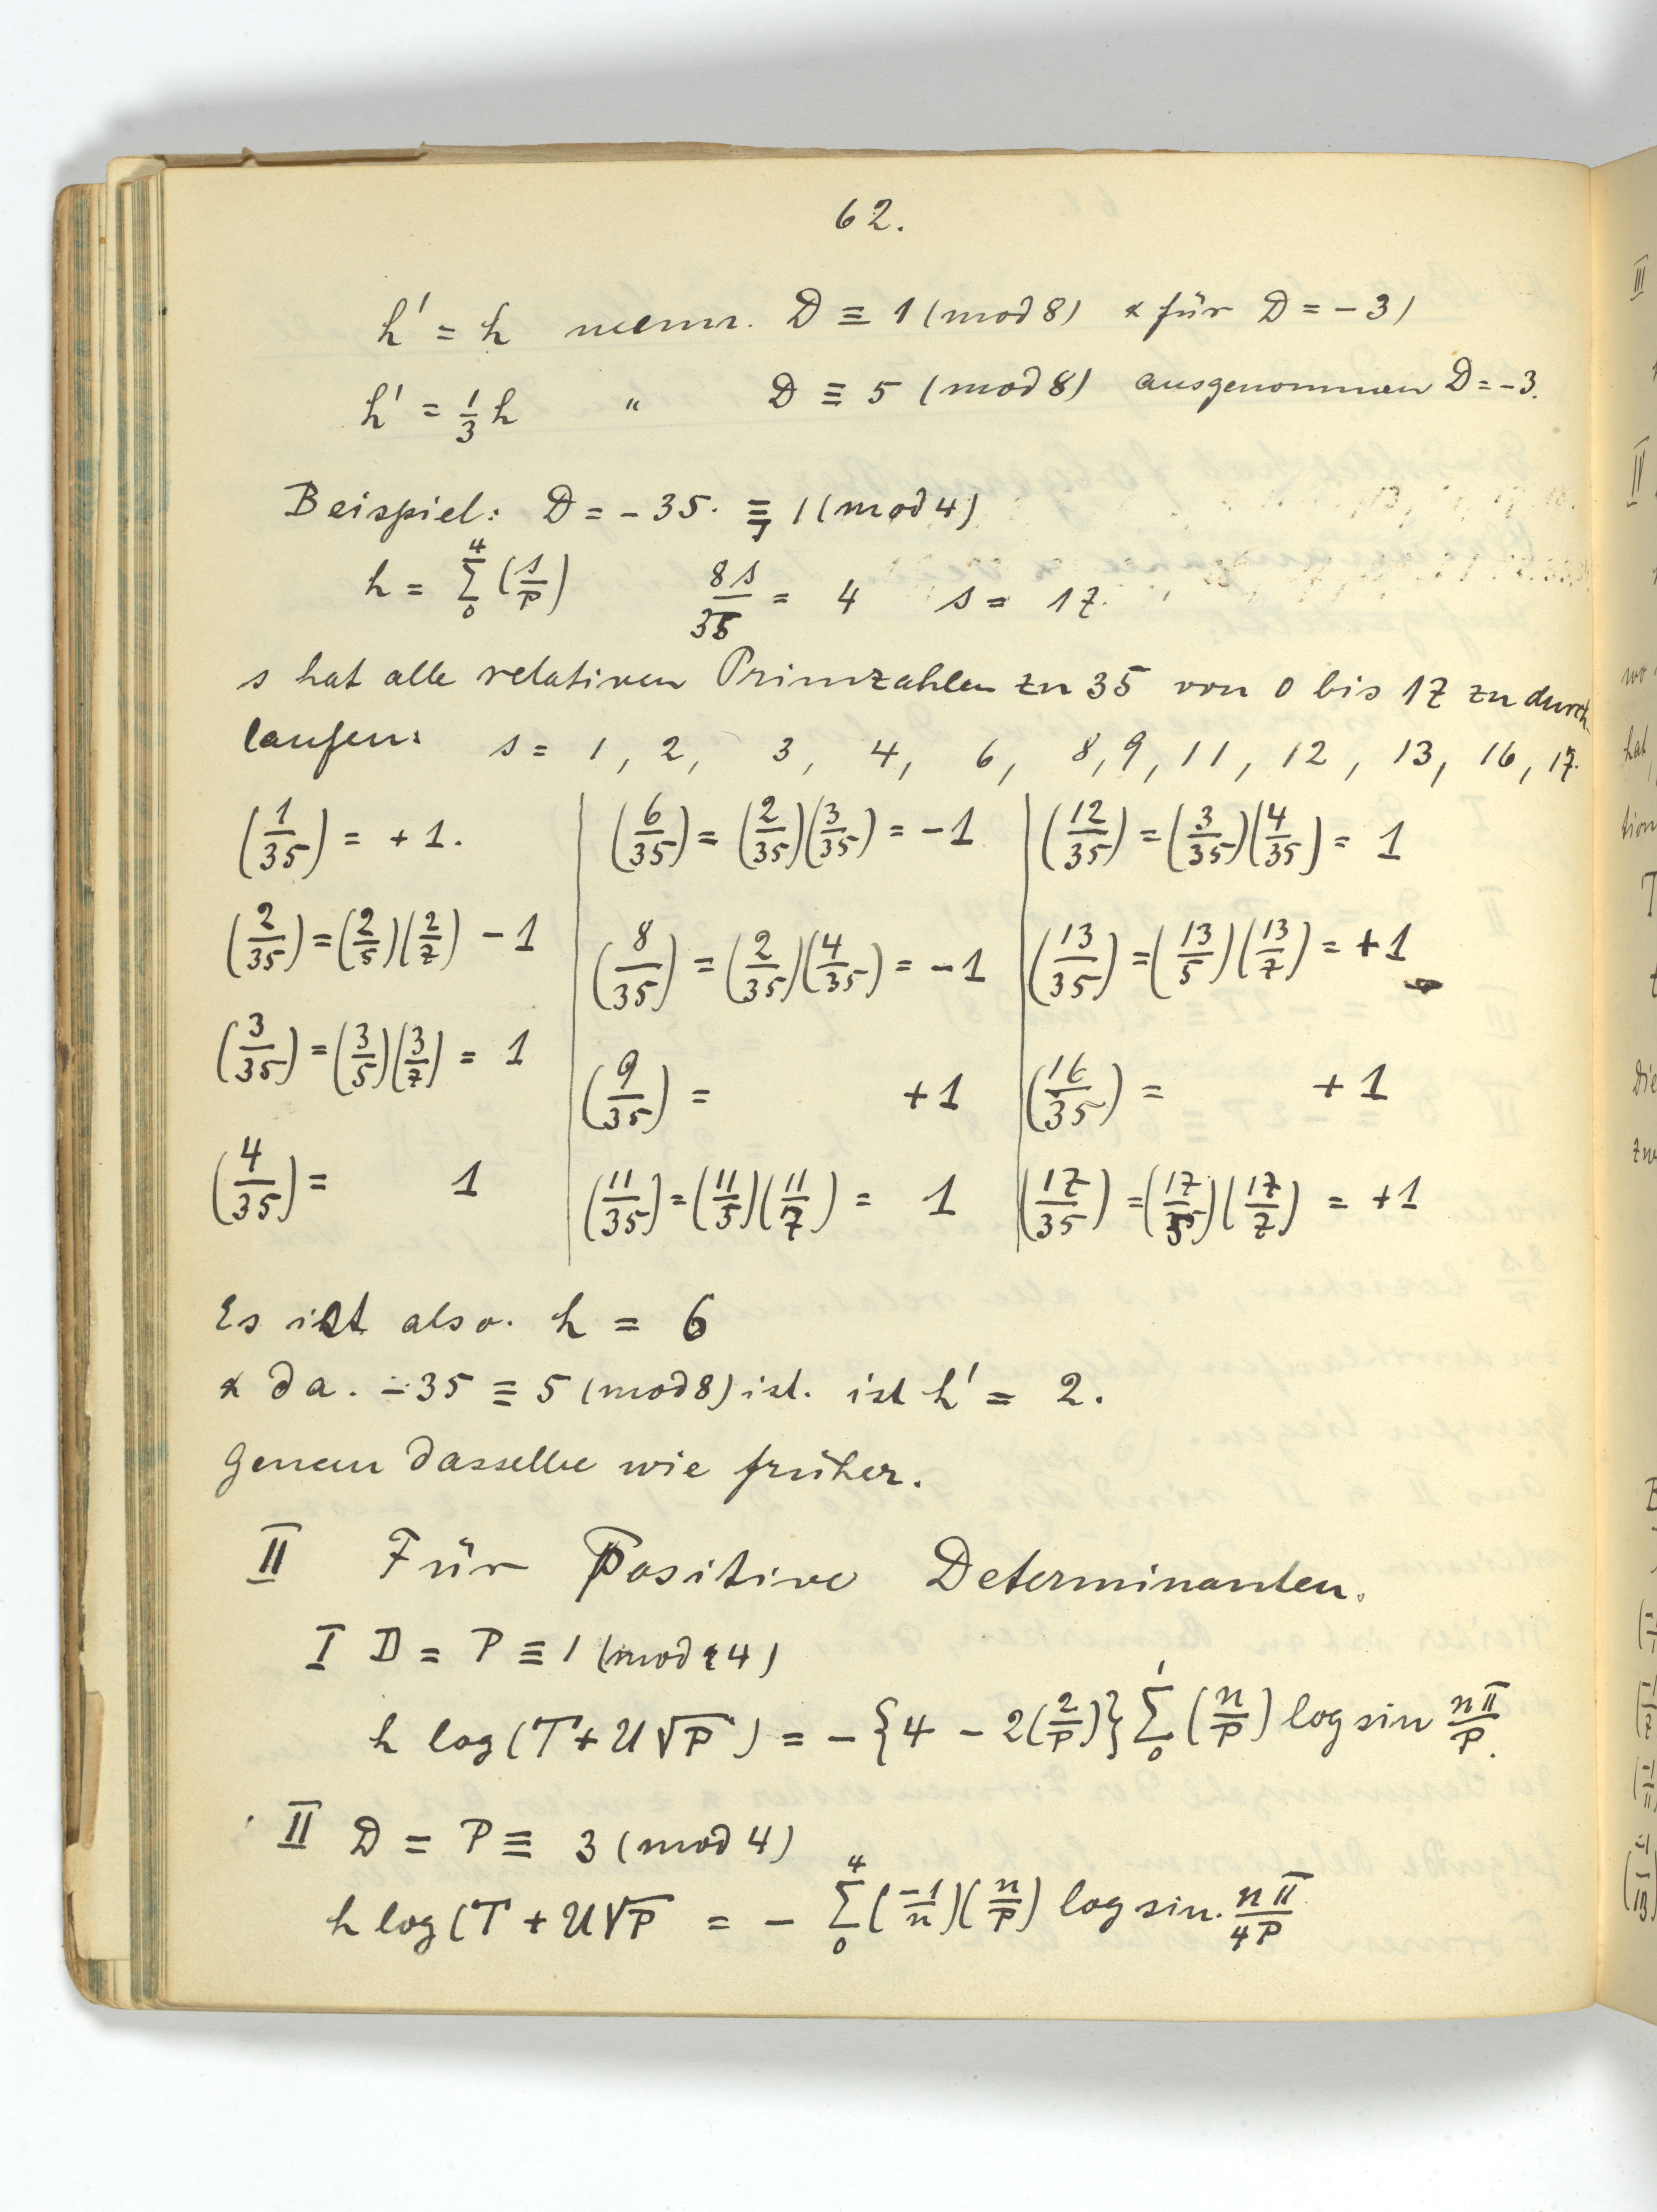 62.
h' = h wenn. D ≡ 1 (mod 8) & für D = -3)
h' = 1/3 h " D ≡ 5 (mod 8) ausgenommen D = -3.
Beispiel: D = -35. ≡ 1 (mod 4)
h = Σ₀⁴ (s/P) 8s/35 = 4 s = 17.
s hat alle relativen Primzahlen zu 35 von 0 bis 17 zu durch
laufen: s = 1, 2, 3, 4, 6, 8, 9, 11, 12, 13, 16, 17.
(1/35) = +1. (6/35) = (2/35)(3/35) = -1 (12/35) = (3/35)(4/35) = 1
(2/35) = (2/5)(2/7) -1 (8/35) = (2/35)(4/35) = -1 (13/35) = (13/5)(13/7) = +1
(3/35) = (3/5)(3/7) = 1 (9/35) = +1 (16/35) = +1
(4/35) = 1 (11/35) = (11/5)(11/7) = 1 (17/35) = (17/5)(17/7) = +1
Es ist also. h = 6
& da. -35 ≡ 5 (mod 8) ist. ist h' = 2.
Genau dasselbe wie früher.
II Für Positive Determinanten.
I D = P ≡ 1 (mod 4)
h log(T + U√P) = -{4 - 2(2/P)} Σ₀¹ (n/P) log sin nπ/P.
II D = P ≡ 3 (mod 4)
h log(T + U√P = - Σ₀⁴ (-1/n)(n/P) log sin. nπ/4P